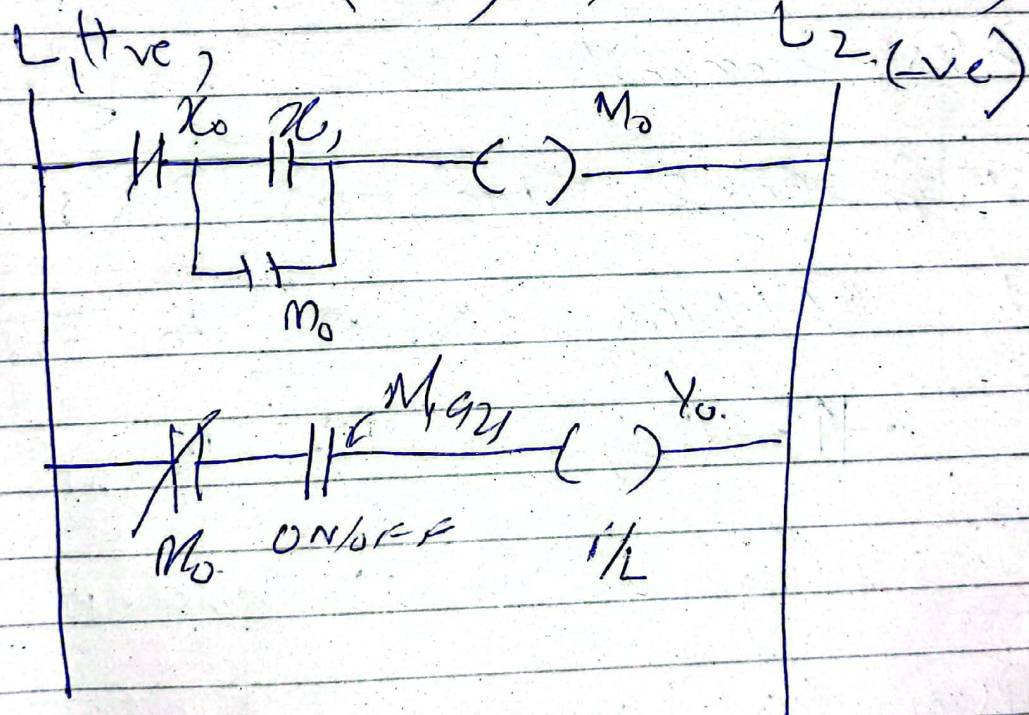 L1 (+ve) L2 (-ve)
X0 X1 M0
M0
M1921 Y0.
M0. ON/OFF I/L